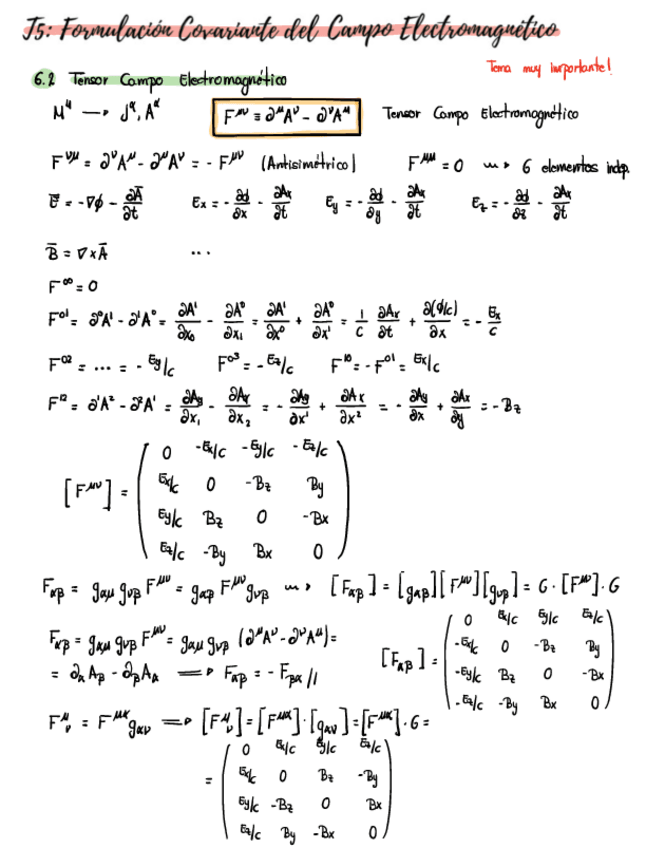 T5: Formulación Covariante del Campo Electromagnético
Tema muy importante!
6.2 Tensor Campo Electromagnético
M⁴ → Jᵅ, Aᵅ    F^μν ≡ ∂^μA^ν - ∂^νA^μ    Tensor Campo Electromagnético
F^νμ = ∂^νA^μ - ∂^μA^ν = - F^μν (Antisimétrico)    F^μμ = 0 ⇝ 6 elementos indp.
E̅ = -∇ϕ - ∂A̅/∂t    Ex = - ∂ϕ/∂x - ∂Ax/∂t    Ey = - ∂ϕ/∂y - ∂Ax/∂t    Ez = - ∂ϕ/∂z - ∂Ax/∂t
B̅ = ∇ x A̅    ...
F^00 = 0
F^01 = ∂^0A^1 - ∂^1A^0 = ∂A^1/∂x_0 - ∂A^0/∂x_1 = ∂A^1/∂x^0 + ∂A^0/∂x^1 = 1/c ∂Ax/∂t + ∂(ϕ/c)/∂x = - Ex/c
F^02 = ... = - Ey/c    F^03 = - Ez/c    F^10 = - F^01 = Ex/c
F^12 = ∂^1A^2 - ∂^2A^1 = ∂Ay/∂x_1 - ∂Ax/∂x_2 = - ∂Ay/∂x^1 + ∂Ax/∂x^2 = - ∂Ay/∂x + ∂Ax/∂y = - Bz
0 -Ex/c -Ey/c -Ez/c
[F^μν] = Ex/c 0 -Bz By
Ey/c Bz 0 -Bx
Ez/c -By Bx 0
F_αβ = g_αμ g_νβ F^μν = g_αβ F^μν g_νβ ⇝ [F_αβ] = [g_αβ][F^μν][g_νβ] = G · [F^μν] · G
F_αβ = g_αμ g_νβ F^μν = g_αμ g_νβ (∂^μA^ν - ∂^νA^μ) =
= ∂_αA_β - ∂_βA_α ⟹ F_αβ = - F_βα //
0 Ex/c Ey/c Ez/c
[F_αβ] = -Ex/c 0 -Bz By
-Ey/c Bz 0 -Bx
-Ez/c -By Bx 0
F^μ_ν = F^μα g_αν ⟹ [F^μ_ν] = [F^μα] · [g_αν] = [F^μα] · G =
0 Ex/c Ey/c Ez/c
= Ex/c 0 Bz -By
Ey/c -Bz 0 Bx
Ez/c By -Bx 0